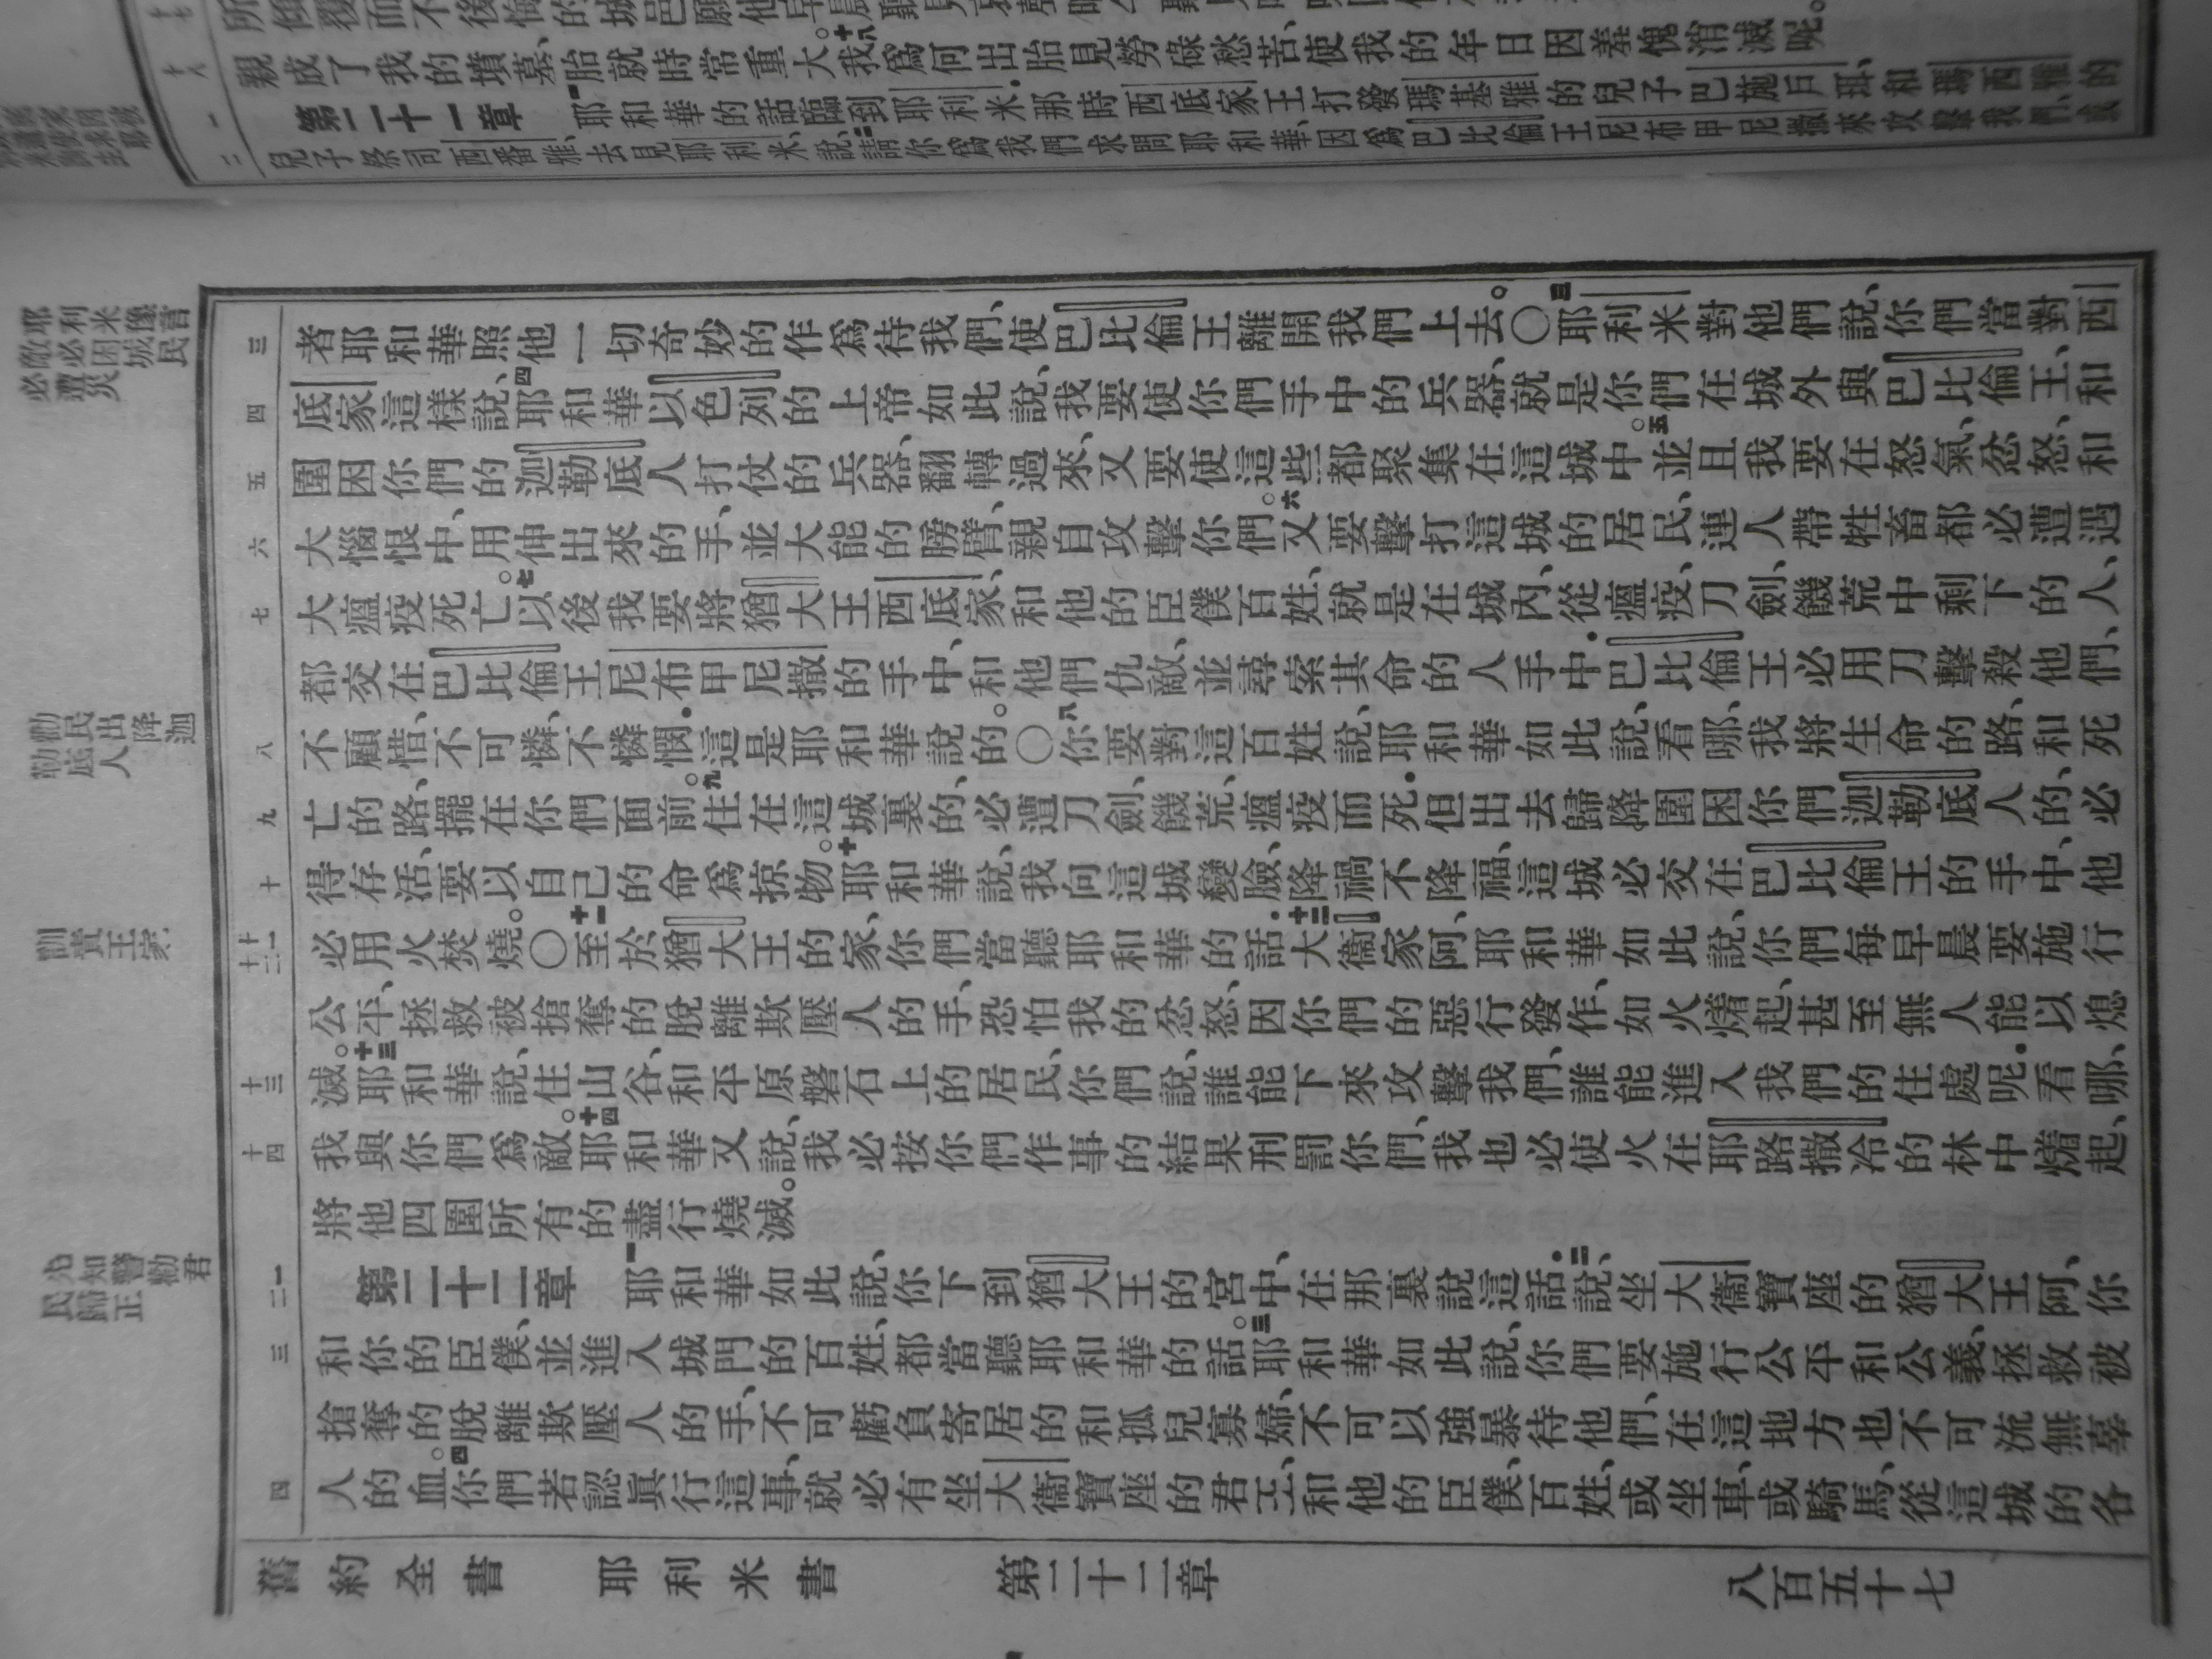 親成了我的墳墓、胎就時常重大。十八我爲何出胎見勞碌愁苦、使我的年日因羞愧消滅呢。
第二十一章　一耶和華的話臨到耶利米、那時西底家王打發瑪基雅的兒子巴施戶珥、和瑪西雅的
兒子祭司西番雅、去見耶利米、說、二請你爲我們求問耶和華、因爲巴比倫王尼布甲尼撒來攻擊我們、或
者耶和華照他一切奇妙的作爲待我們、使巴比倫王離開我們上去。〇三耶利米對他們說、你們當對西
底家這樣說、四耶和華以色列的上帝如此說、我要使你們手中的兵器、就是你們在城外與巴比倫王、和
圍困你們的迦勒底人打仗的兵器、翻轉過來、又要使這些都聚集在這城中。五並且我要在怒氣、忿怒、和
大惱恨中、用伸出來的手、並大能的膀臂、親自攻擊你們。六又要擊打這城的居民、連人帶牲畜都必遭遇
大瘟疫死亡。七以後我要將猶大王西底家、和他的臣僕百姓、就是在城內、從瘟疫、刀劍、饑荒中剩下的人、
都交在巴比倫王尼布甲尼撒的手中、和他們仇敵、並尋索其命的人手中．巴比倫王必用刀擊殺他們、
不顧惜、不可憐、不憐憫．這是耶和華說的。〇八你要對這百姓說、耶和華如此說、看哪、我將生命的路、和死
亡的路、擺在你們面前。九住在這城裏的、必遭刀劍、饑荒、瘟疫而死．但出去歸降圍困你們迦勒底人的、必
得存活、要以自己的命爲掠物。十耶和華說、我向這城變臉、降禍不降福、這城必交在巴比倫王的手中、他
必用火焚燒。〇十一至於猶大王的家、你們當聽耶和華的話．十二大衞家阿、耶和華如此說、你們每早晨要施行
公平、拯救被搶奪的脫離欺壓人的手、恐怕我的忿怒、因你們的惡行發作、如火㸐起、甚至無人能以熄
滅。十三耶和華說、住山谷、和平原磐石上的居民、你們說、誰能下來攻擊我們、誰能進入我們的住處呢．看哪、
我與你們爲敵。十四耶和華又說、我必按你們作事的結果刑罰你們、我也必使火在耶路撒冷的林中㸐起、
將他四圍所有的盡行燒滅。
第二十二章　一耶和華如此說、你下到猶大王的宮中、在那裏說這話．二說、坐大衞寶座的猶大王阿、你
和你的臣僕、並進入城門的百姓、都當聽耶和華的話。三耶和華如此說、你們要施行公平和公義、拯救被
搶奪的脫離欺壓人的手、不可虧負寄居的和孤兒寡婦、不可以強暴待他們、在這地方也不可流無辜
人的血。四你們若認眞行這事、就必有坐大衞寶座的君王、和他的臣僕、百姓、或坐車、或騎馬、從這城的各
舊約全書　耶利米書　第二十二章　八百五十七
十八
一
二
三
四
五
六
七
八
九
十
十一
十二
十三
十四
一
二
三
四
耶利米像言
敵必困城民
必遭災
勸民出降迦
勒底人
訓責王家
警勸君
民歸正